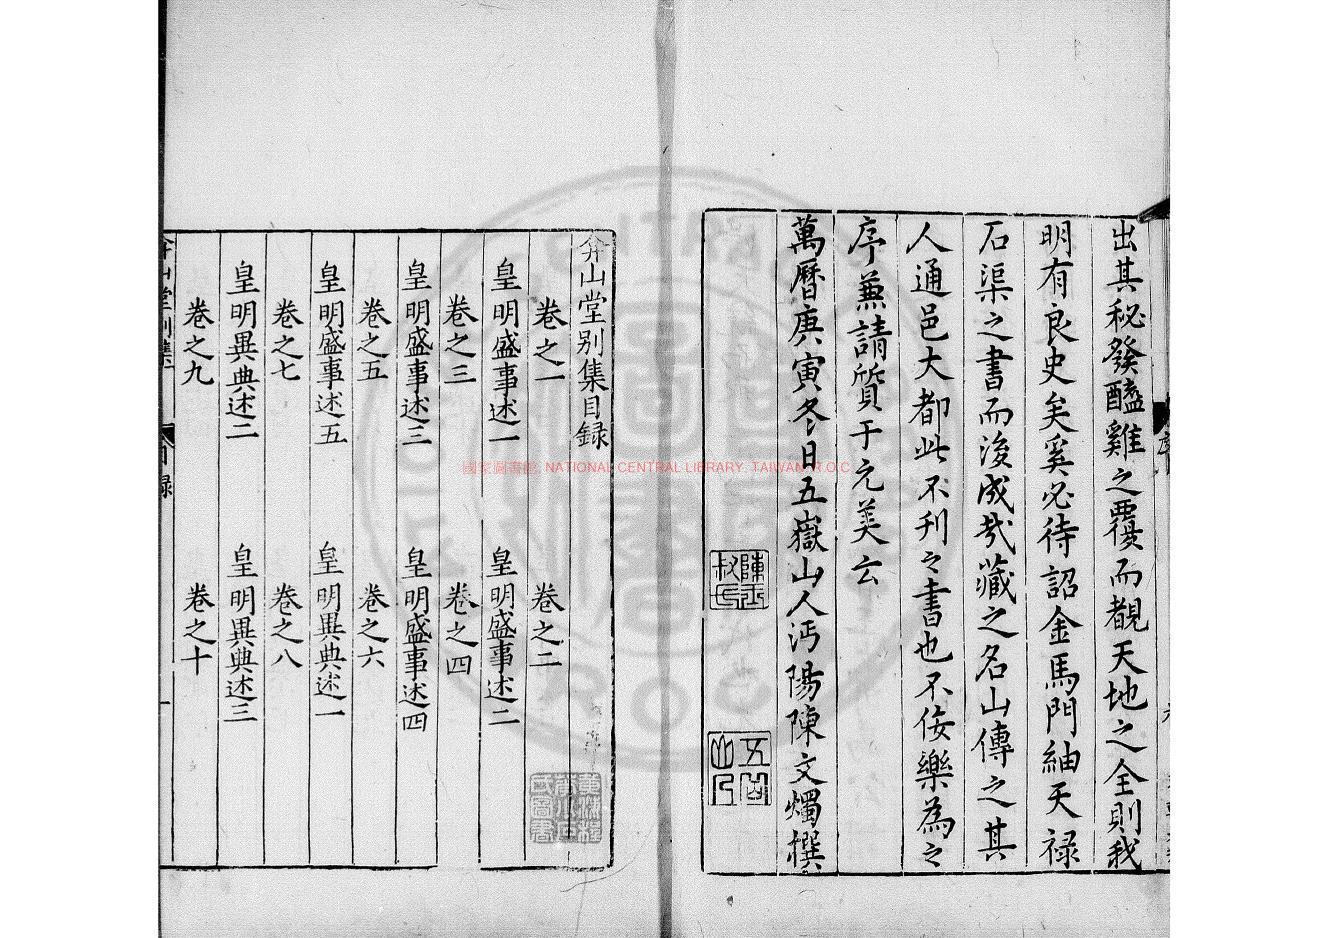 出其秘發醯雞之覆而覩天地之全則我
明有良史矣奚必待詔金馬門紬天祿
石渠之書而後成哉藏之名山傳之其
人通邑大都此不刋之書也不佞樂為之
序蕪請質于元美云
萬曆庚寅冬日五嶽山人沔陽陳文燭撰
陳玉叔氏
五嶽山人
弇山堂别集目録
卷之一
卷之二
皇明盛事述一
皇明盛事述二
卷之三
卷之四
皇明盛事述三
皇明盛事述四
卷之五
卷之六
皇明盛事述五
皇明異典述一
卷之七
卷之八
皇明異典述二
皇明異典述三
卷之九
卷之十
弇山堂别集
目録
一
國家圖書館 NATIONAL CENTRAL LIBRARY, TAIWAN R.O.C